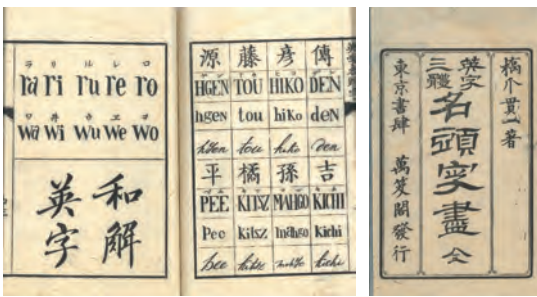 ラ リ ル レ ロ
ra ri ru re ro
wa wi wu we wo
和解
英字
源 藤 彦 傳
HGEN TOU HIKO DEN
hgeN tou hiKo deN
hgen tou hiko den
平 橘 孫 吉
PEE KITSZ MAHGO KICHI
Pee kitsZ mahgo kichi
pee kitsz mahgo kichi
橋爪貫一著
英字
三體
名頭字盡 全
東京書肆 萬笈閣發行